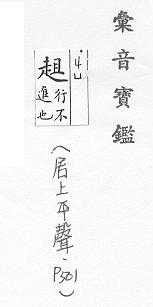 彙音寶鑑
趄
行不
進也
(居上平聲,P501)